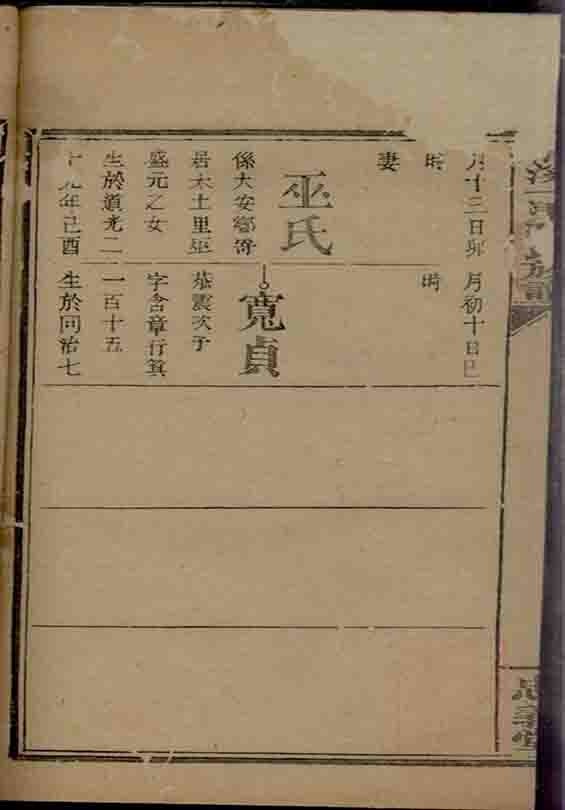 月十三日卯
時
妻
巫氏
係大安鄉寄
居禾土里巫
盛元之女
生於道光二
十九年己酉
月初十日巳
時
寬貞
恭震次子
字含章行箕
一百十五
生於同治七
氏族譜
忠義堂